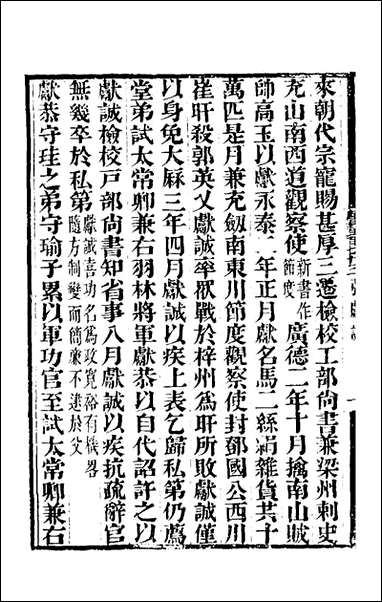 來朝代宗寵賜甚厚三遷檢校工部尚書兼梁州刺史
充山南西道觀察使新書作節度廣德二年十月擒南山賊
帥高玉以獻永泰二年正月獻名馬二絲絹雜貨共十
萬匹是月兼充劔南東川節度觀察使封鄧國公西川
崔旰殺郭英乂獻誠率眾戰於梓州爲旰所敗獻誠僅
以身免大厤三年四月獻誠以疾上表乞歸私第仍薦
堂弟試太常卿兼右羽林將軍獻恭以自代詔許之以
獻誠檢校戶部尚書知省事八月獻誠以疾抗疏辭官
無幾卒於私第獻誠喜功名爲政寬裕有機畧隨方制變而簡廉不逮於父
獻恭守珪之弟守瑜子累以軍功官至試太常卿兼右